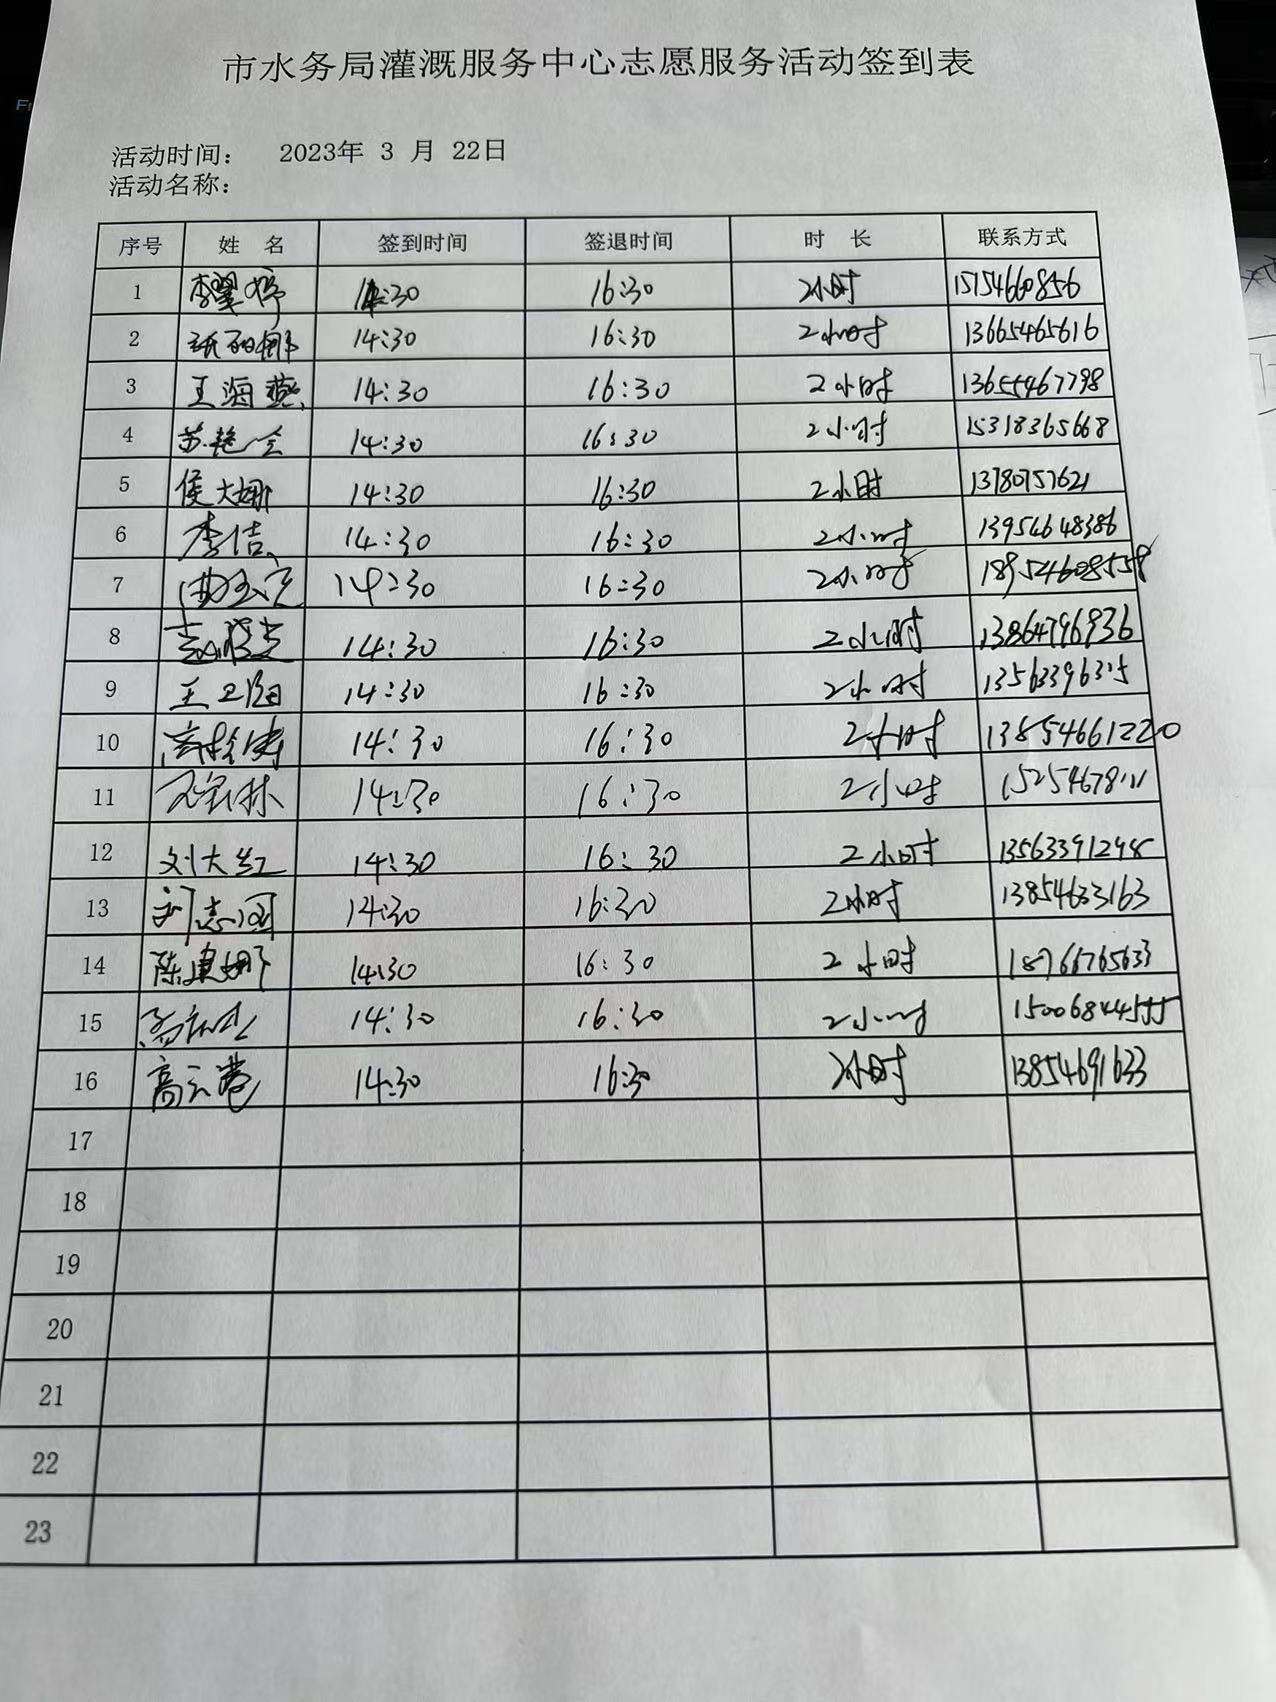 市水务局灌溉服务中心志愿服务活动签到表
活动时间： 2023年 3 月 22日
活动名称：
序号 姓 名 签到时间 签退时间 时 长 联系方式
1 李翠婷 14:30 16:30 2小时 15154660856
2 14:30 16:30 2小时 13665465616
3 王海燕 14:30 16:30 2小时 13655467798
4 苏艳会 14:30 16:30 2小时 15318365668
5 侯大娜 14:30 16:30 2小时 13780757621
6 李洁 14:30 16:30 2小时 13954648386
7 14:30 16:30 2小时 18954608558
8 14:30 16:30 2小时 13864796936
9 王卫海 14:30 16:30 2小时 13563396315
10 14:30 16:30 2小时
11 14:30 16:30 2小时
12 刘大红 14:30 16:30 2小时 13563391298
13 刘志国 14:30 16:30 2小时 13854633163
14 陈建娜 14:30 16:30 2小时 18766765633
15 14:30 16:30 2小时 15006844555
16 高云 14:30 16:30 2小时 13854691633
17
18
19
20
21
22
23